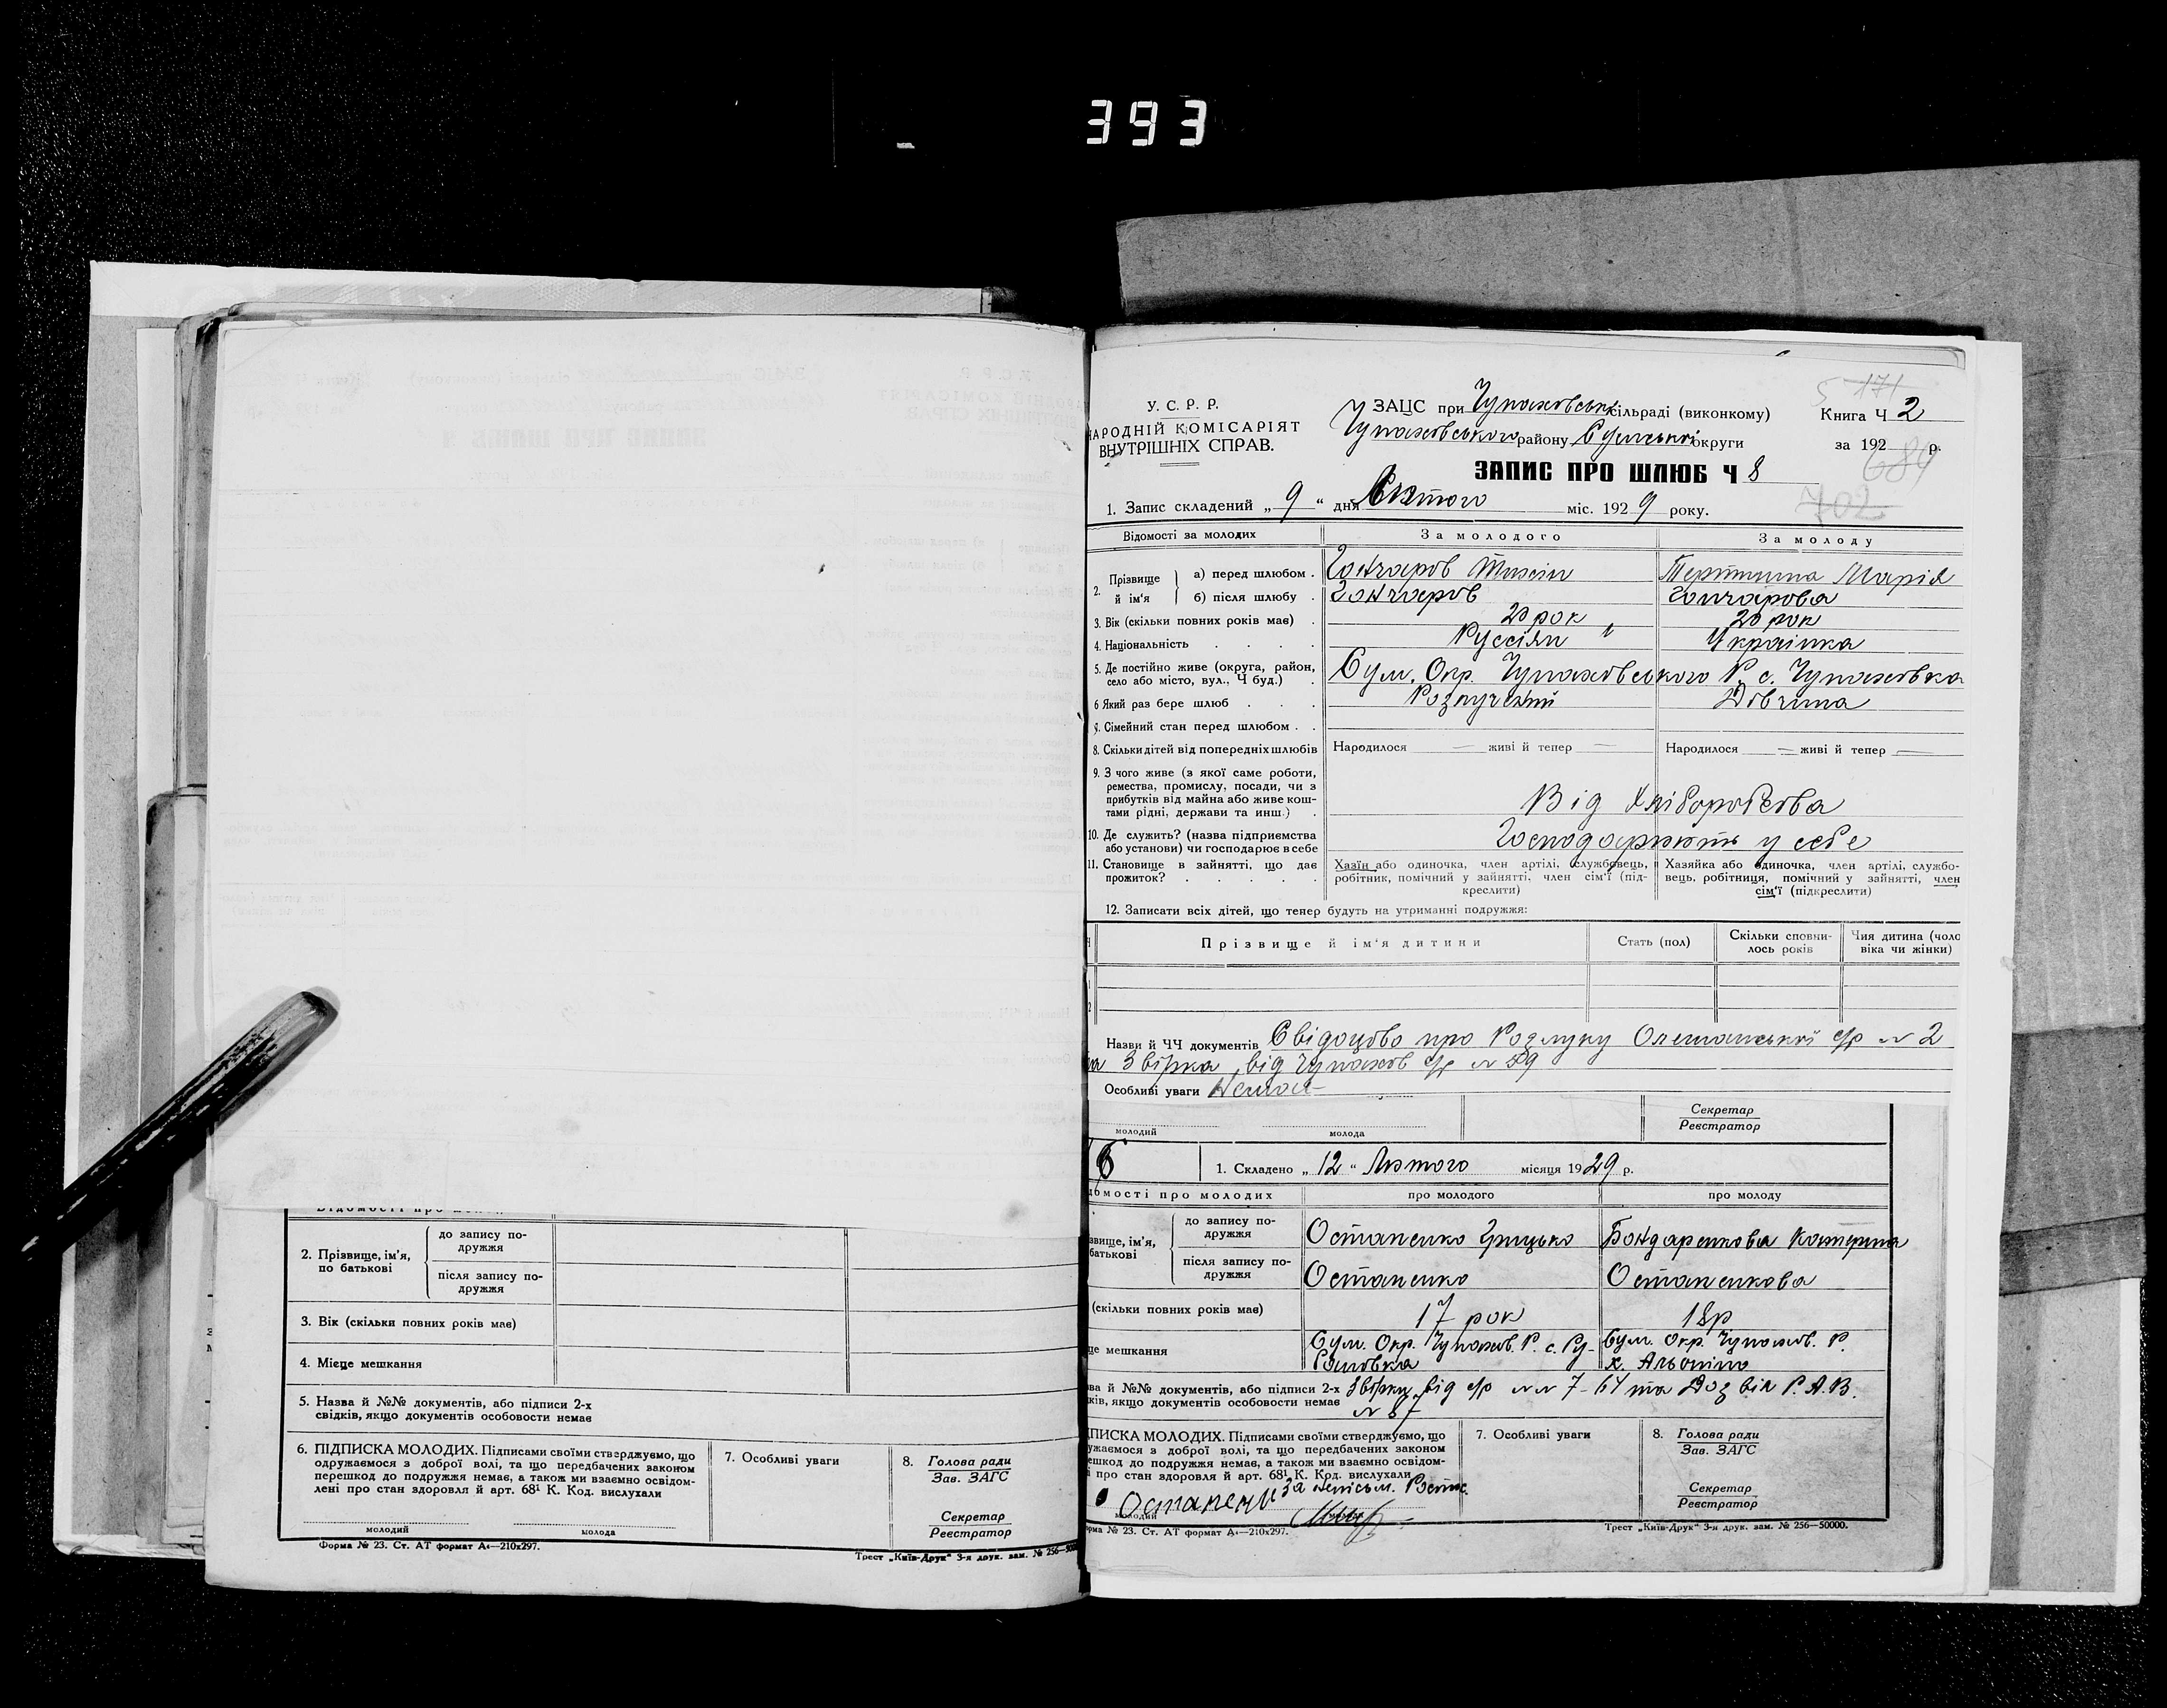 393
У. С. Р. Р.
НАРОДНІЙ КОМІСАРІЯТ
ВНУТРІШНІХ СПРАВ.
ЗАЦС при Чупаховські сільраді (виконкому)
Чупаховського району Сумської округи
Книга Ч 2
за 192 р.
5 171
689
702
ЗАПИС ПРО ШЛЮБ Ч 8
1. Запис складений „ 9 “ дня Лютого міс. 1929 року.
Відомості за молодих
За молодого
За молоду
2. Прізвище й ім'я
а) перед шлюбом .
Гончаров
Марія
б) після шлюбу .
Гончаров
Гончарова
3. Вік (скільки повних років має) .
20 рок
20 рок
4. Національність . . . .
Руссіян
Українка
5. Де постійно живе (округа, район,
село або місто, вул., Ч буд.) .
Сум. Окр. Чупаховського Р. с. Чупаховка
6 Який раз бере шлюб . . .
Розлучений
Дівчина
7. Сімейний стан перед шлюбом . .
8. Скільки дітей від попередніх шлюбів
Народилося — живі й тепер —
Народилося — живі й тепер —
9. З чого живе (з якої саме роботи,
ремества, промислу, посади, чи з
прибутків від майна або живе кош-
тами рідні, держави та инш.) .
Від Хліборобства
10. Де служить? (назва підприємства
або установи) чи господарює в себе
Господарюють у себе
11. Становище в зайнятті, що дає
прожиток? . . . . .
Хазїн або одиночка, член артілі, службовець,
робітник, помічний у зайнятті, член сім'ї (під-
креслити)
Хазяйка або одиночка, член артілі, службо-
вець, робітниця, помічний у зайнятті, член
сім'ї (підкреслити)
12. Записати всіх дітей, що тепер будуть на утриманні подружжя:
Прізвище й ім'я дитини
Стать (пол)
Скільки сповни-
лось років
Чия дитина (чоло
віка чи жінки)
Назви й ЧЧ документів Свідоцтво про Розлуку Олешанської с/р № 2
та Звірка від Чупахов с/р № 59
Особливі уваги Немає
молодий
молода
Секретар
Реєстратор
1. Складено „ 12 “ Лютого місяця 1929 р.
домості про молодих
про молодого
про молоду
звище, ім'я,
батькові
до запису по-
дружжя
Остапенко Грицько
Бондаренкова Катерина
після запису по-
дружжя
Остапенко
Остапенкова
(скільки повних років має)
17 рок
18р
це мешкання
Сум. Окр. Чупахов. Р. с. Ру-
Сум. Окр. Чупахов. Р.
зва й №№ документів, або підписи 2-х
дків, якщо документів особовости немає
Звірки від с/р №№ 7-64 та Дозвіл Р.А.В.
№ 87
ПИСКА МОЛОДИХ. Підписами своїми стверджуємо, що
ужаємося з доброї волі, та що передбачених законом
ешкод до подружжя немає, а також ми взаємно освідом-
і про стан здоровля й арт. 68¹ К. Код. вислухали
за неписьм.
Остапенк
молодий
7. Особливі уваги
8. Голова ради
Зав. ЗАГС
Секретар
Реєстратор
рма № 23. Ст. АТ формат А₄—210х297.
Трест „Київ-Друк“ 3-я друк. зам. № 256—50000.
2. Прізвище, ім'я,
по батькові
до запису по-
дружжя
після запису по-
дружжя
3. Вік (скільки повних років має)
4. Мієце мешкання
5. Назва й №№ документів, або підписи 2-х
свідків, якщо документів особовости немає
6. ПІДПИСКА МОЛОДИХ. Підписами своїми стверджуємо, що
одружаємося з доброї волі, та що передбачених законом
перешкод до подружжя немає, а також ми взаємно освідом-
лені про стан здоровля й арт. 68¹ К. Код. вислухали
молодий
молода
7. Особливі уваги
8. Голова ради
Зав. ЗАГС
Секретар
Реєстратор
Форма № 23. Ст. АТ формат А₄—210х297.
Трест „Київ-Друк“ 3-я друк. зам. № 256—5000